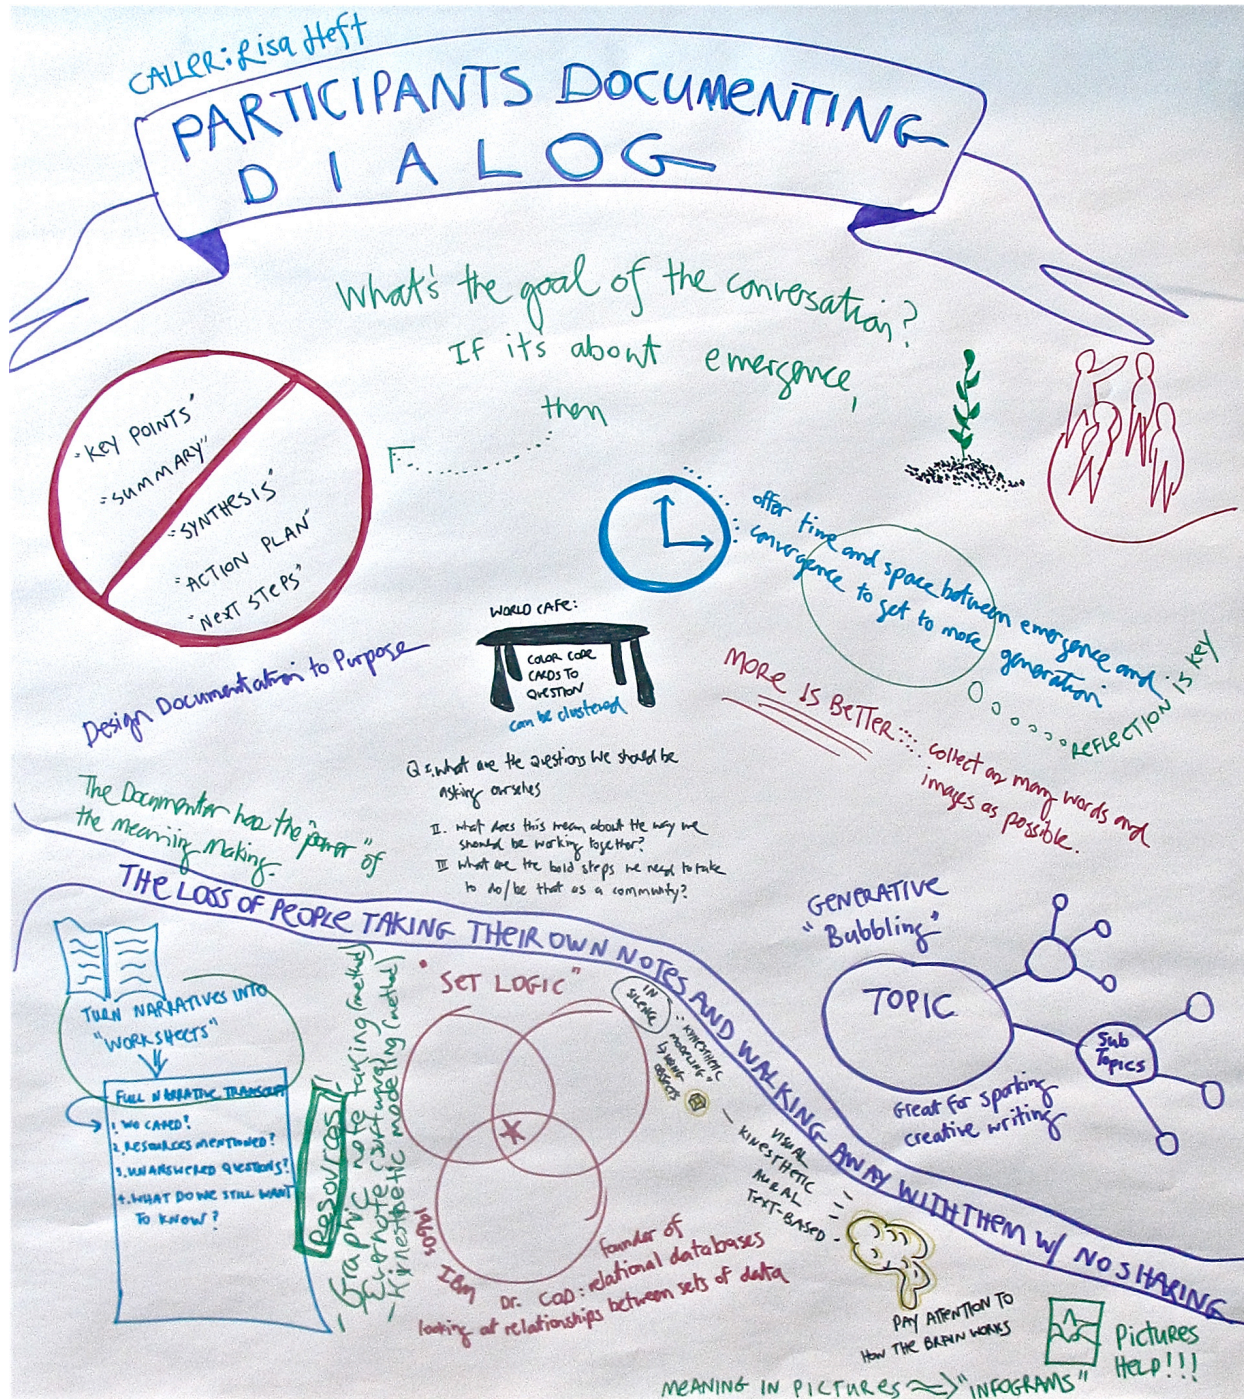 CALLER: Lisa Heft
PARTICIPANTS DOCUMENTING
DIALOG
What's the goal of the conversation?
If it's about emergence,
then
"KEY POINTS"
"SUMMARY"
"SYNTHESIS"
"ACTION PLAN"
"NEXT STEPS"
offer time and space between emergence and
convergence to get to more generation
REFLECTION IS KEY
Design Documentation to Purpose
WORLD CAFE:
COLOR CODE
CARDS TO
QUESTION
can be clustered
MORE IS BETTER
collect as many words and
images as possible.
Q I. What are the questions we should be
asking ourselves
II. What does this mean about the way we
should be working together?
III What are the bold steps we need to take
to do/be that as a community?
The Documenter has the "power" of
the meaning making.
THE LOSS OF PEOPLE TAKING THEIR OWN NOTES AND WALKING AWAY WITH THEM W/ NO SHARING
GENERATIVE
"Bubbling"
TOPIC
Sub
Topics
Great for sparking
creative writing
TURN NARRATIVES INTO
"WORKSHEETS"
FULL NARRATIVE TRANSCRIPT
1. WO CARED?
2. RESOURCES MENTIONED?
3. UNANSWERED QUESTIONS?
4. WHAT DO WE STILL WANT
TO KNOW?
Resources!!
- Graphic note taking (method)
- Evernote (software)
- Kinesthetic modeling (method)
"SET LOGIC"
1960s IBM
Dr. COD: founder of
relational databases
looking at relationships between sets of data
IN
SILENCE
"KINESTHETIC
MODELING"
USING
OBJECTS
VISUAL
KINESTHETIC
AURAL
TEXT-BASED
PAY ATTENTION TO
HOW THE BRAIN WORKS
Pictures
HELP!!!
MEANING IN PICTURES "INFOGRAMS"